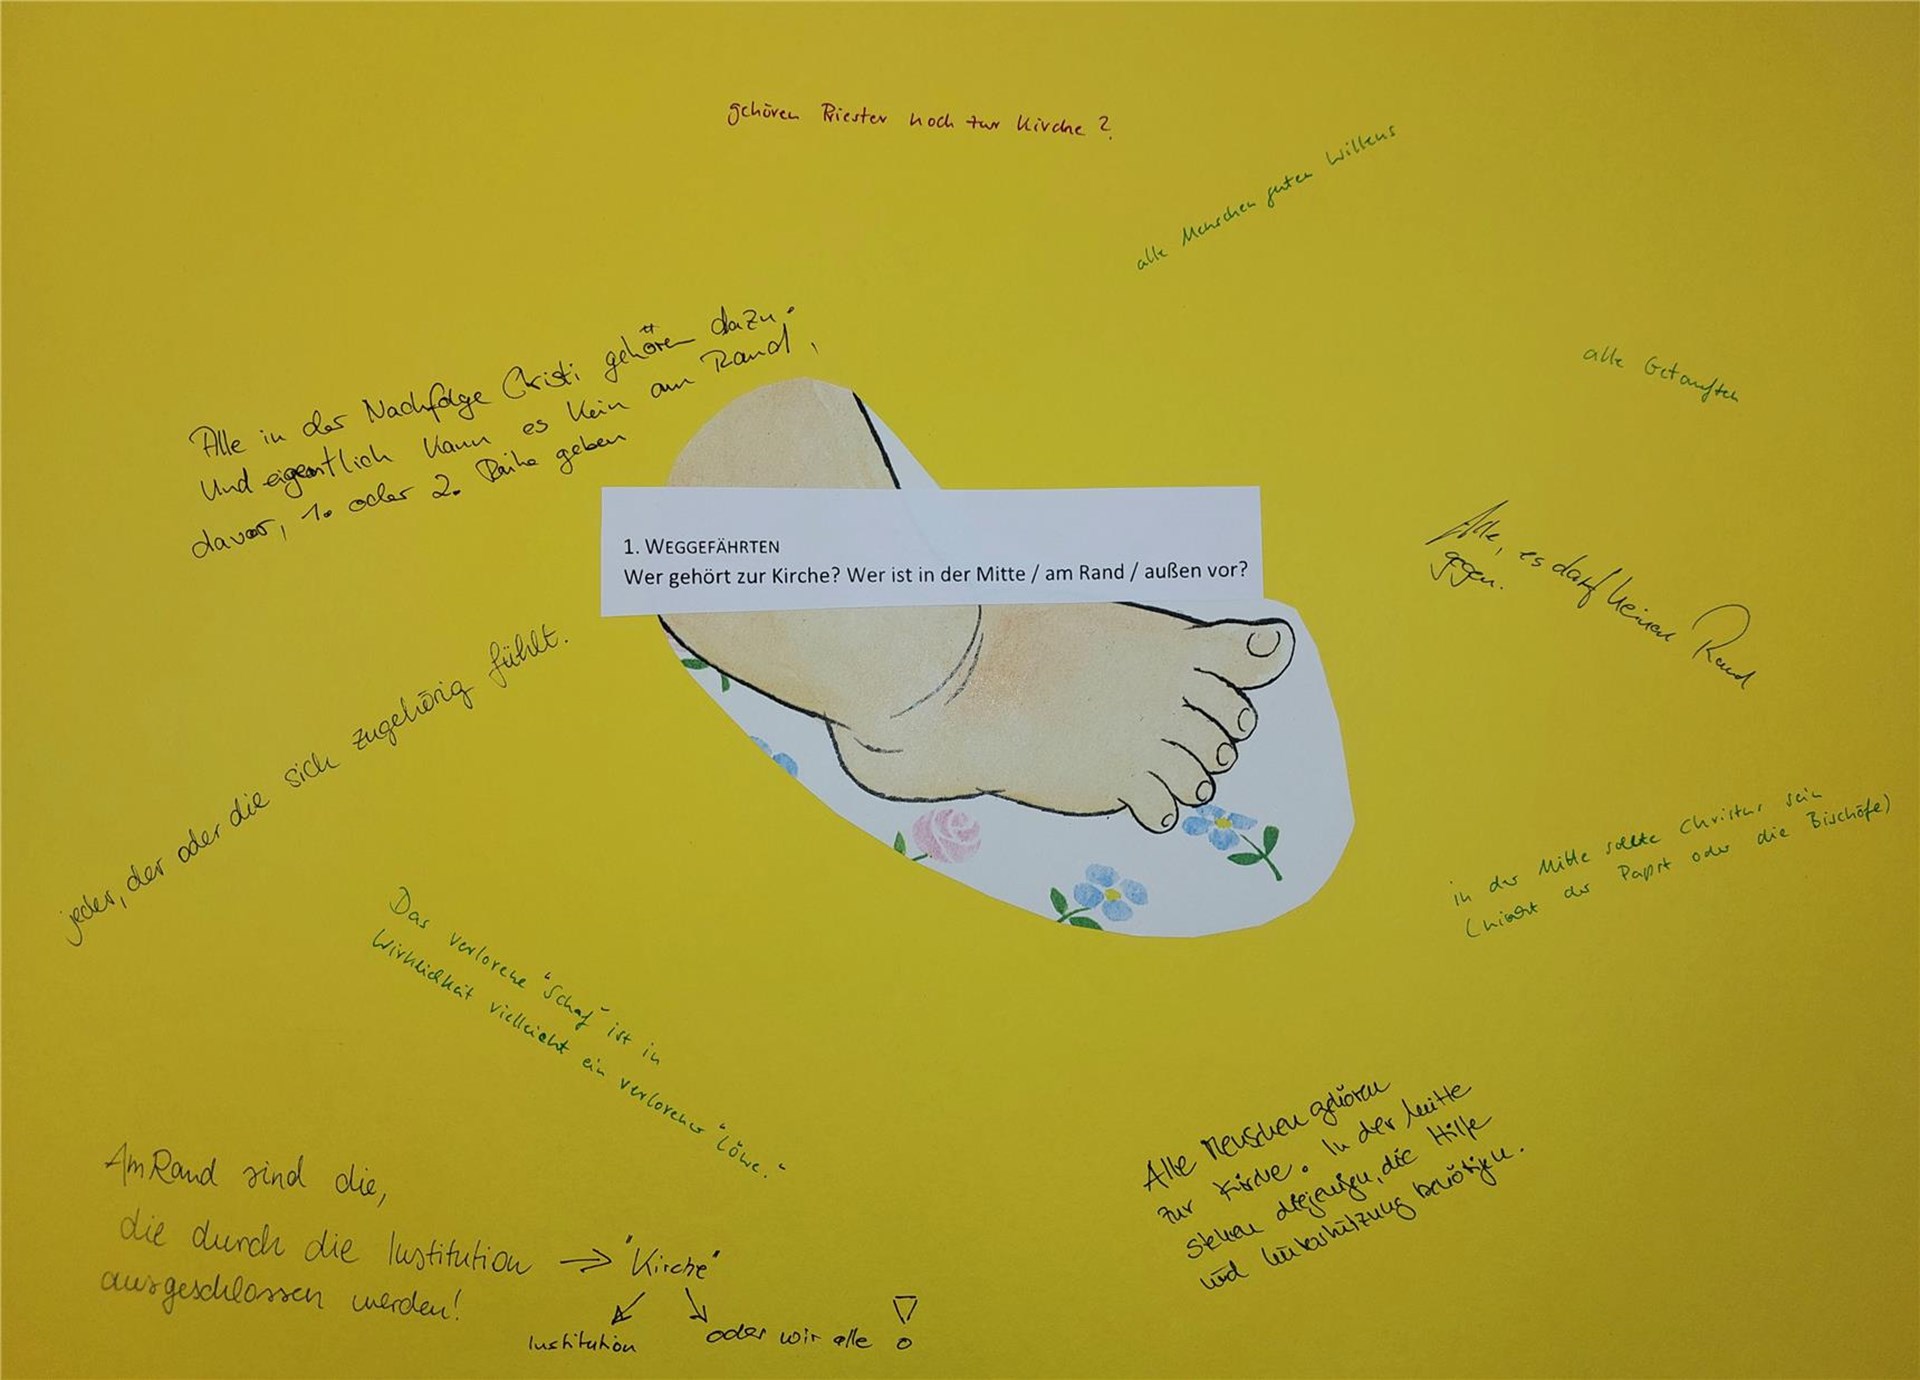 gehören Priester noch zur Kirche?
alle Menschen guten Willens
alle Getauften
Alle in der Nachfolge Christi gehören dazu.
Und eigentlich kann es kein am Rand,
davor, 1. oder 2. Reihe geben
1. WEGGEFÄHRTEN
Wer gehört zur Kirche? Wer ist in der Mitte / am Rand / außen vor?
Alle, es darf keinen Rand
gegen.
jeder, der oder die sich zugehörig fühlt.
in der Mitte sollte Christus sein
(nicht der Papst oder die Bischöfe)
Das verlorene "Schaf" ist in
Wirklichkeit vielleicht ein verlorener "Löwe."
Am Rand sind die,
die durch die Institution → "Kirche"
ausgeschlossen werden!
Institution oder wir alle !
Alle Menschen gehören
zur Kirche. In der Mitte
stehen diejenigen, die Hilfe
und Unterstützung benötigen.